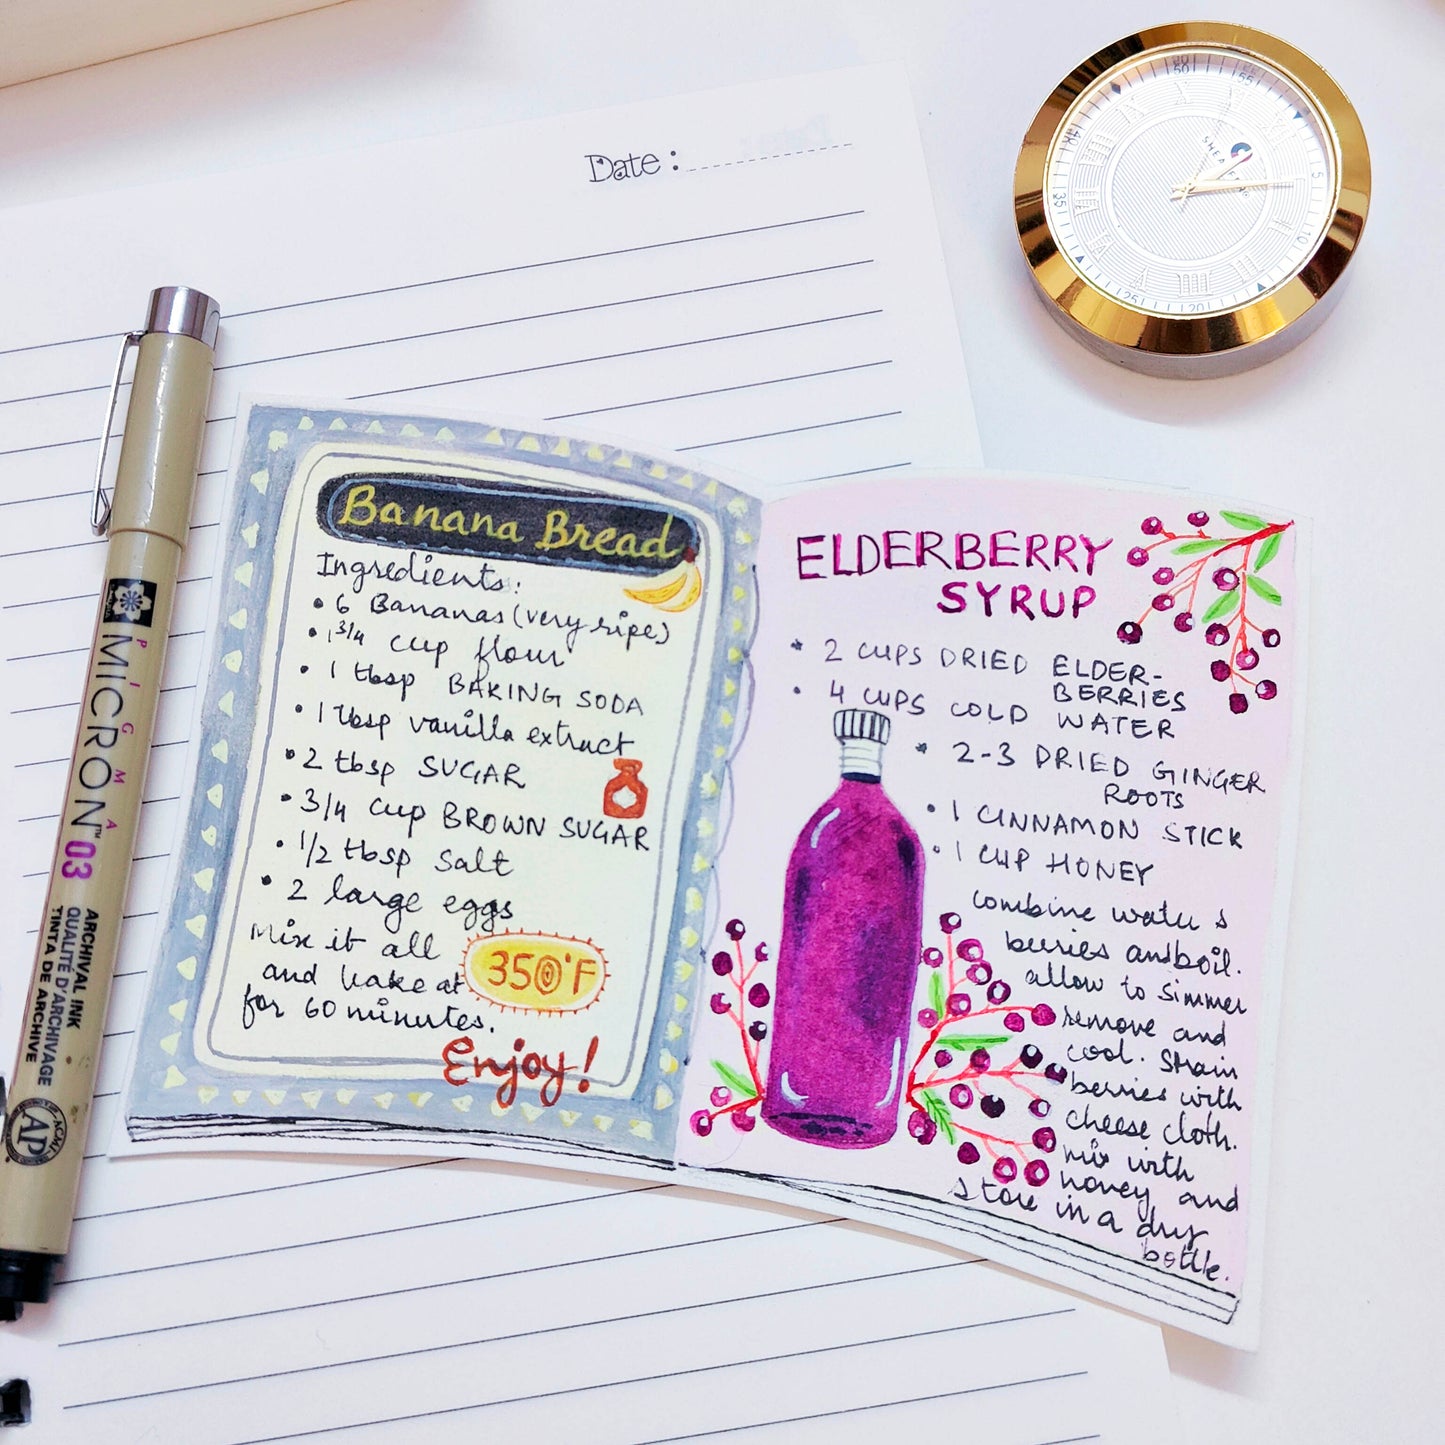 Date :
Banana Bread
Ingredients:
• 6 Bananas (very ripe)
• 1 3/4 cup flour
• 1 tbsp BAKING SODA
• 1 tbsp vanilla extract
• 2 tbsp SUGAR
• 3/4 cup BROWN SUGAR
• 1/2 tbsp salt
• 2 large eggs
Mix it all
and bake at 350°F
for 60 minutes.
Enjoy!
ELDERBERRY
SYRUP
• 2 CUPS DRIED ELDER-
BERRIES
• 4 CUPS COLD WATER
• 2-3 DRIED GINGER
ROOTS
• 1 CINNAMON STICK
• 1 CUP HONEY
combine water &
berries and boil.
allow to simmer
remove and
cool. Strain
berries with
cheese cloth.
mix with
honey and
store in a dry
bottle.
PIGMA
MICRON™ 03
ARCHIVAL INK
QUALITÉ D'ARCHIVAGE
TINTA DE ARCHIVE
AP
50
55
5
10
20
25
35